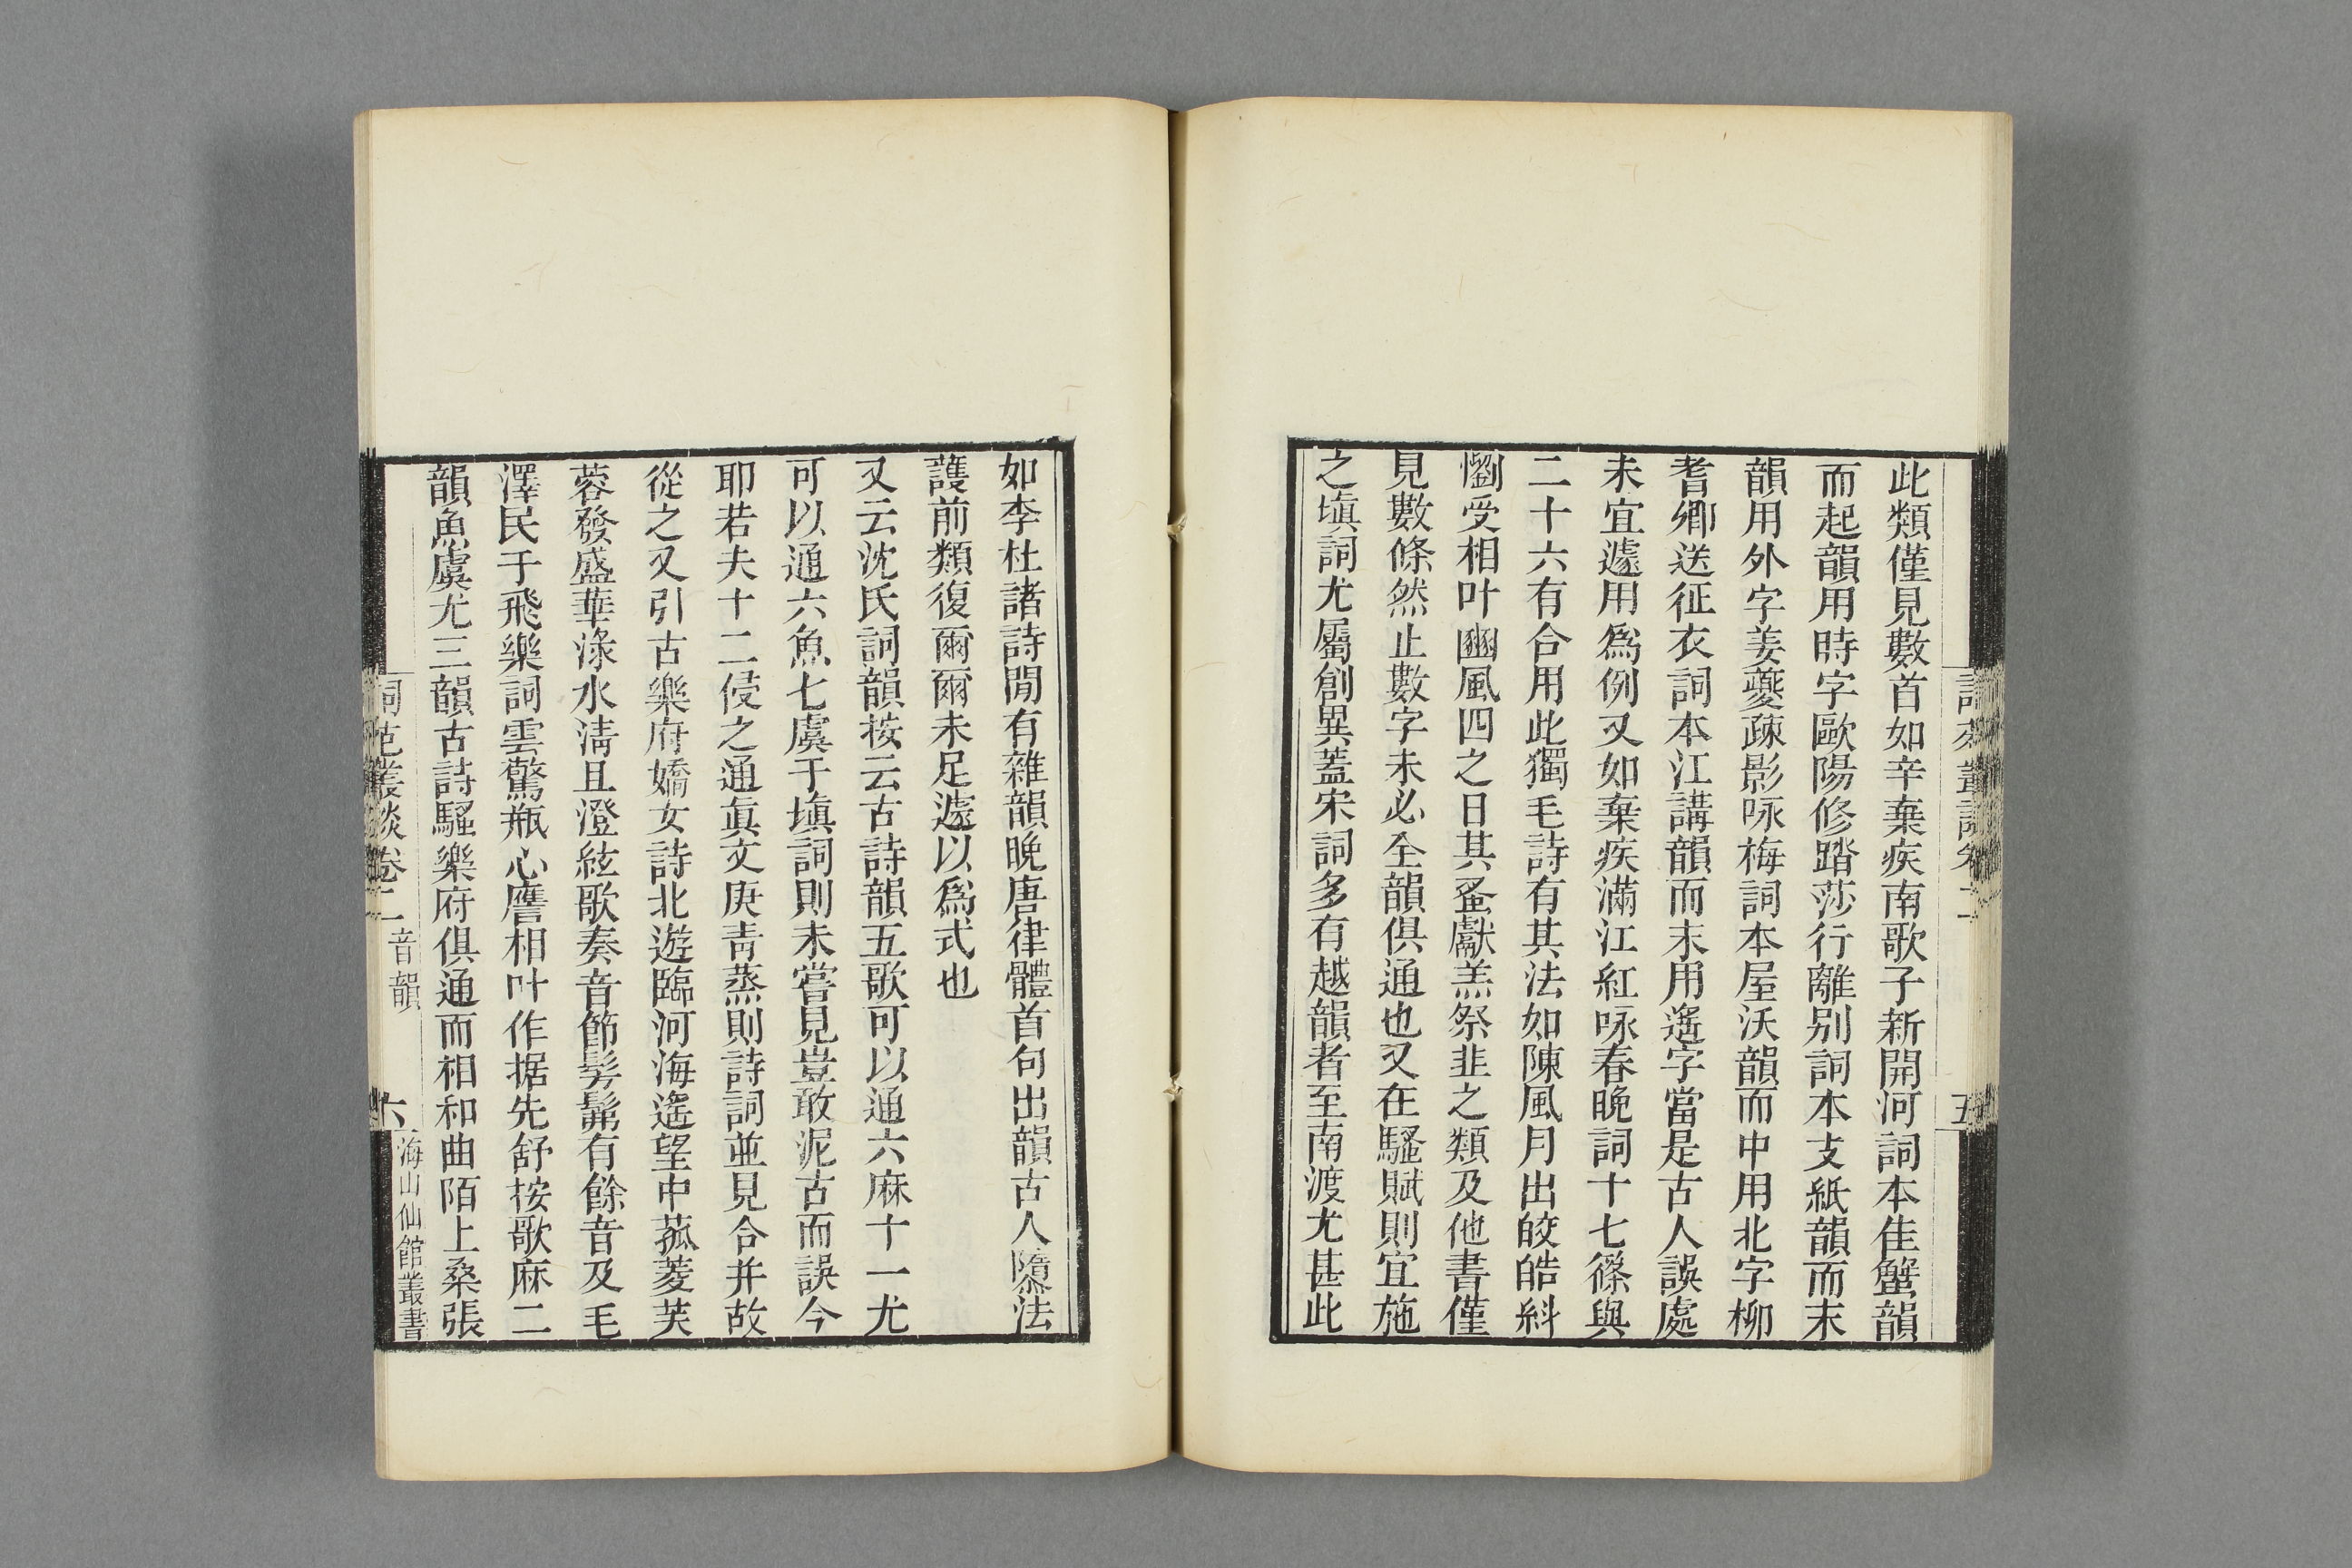 此類僅見數首如辛棄疾南歌子新開河詞本佳蟹韻
而起韻用時字歐陽修踏莎行離别詞本支紙韻而末
韻用外字姜夔疎影咏梅詞本屋沃韻而中用北字柳
耆卿送征衣詞本江講韻而末用遙字當是古人誤處
未宜遽用爲例又如棄疾滿江紅咏春晚詞十七篠與
二十六有合用此獨毛詩有其法如陳風月出皎皓糾
懰受相叶豳風四之日其蚤獻羔祭韭之類及他書僅
見數條然止數字未必全韻俱通也又在騷賦則宜施
之塡詞尤屬創異蓋宋詞多有越韻者至南渡尤甚此
五
如李杜諸詩閒有雜韻晚唐律體首句出韻古人隳法
護前類復爾爾未足遽以爲式也
又云沈氏詞韻按云古詩韻五歌可以通六麻十一尤
可以通六魚七虞于塡詞則未嘗見豈敢泥古而誤今
耶若夫十二侵之通眞文庚靑蒸則詩詞並見合幷故
從之又引古樂府嬌女詩北遊臨河海遙望中菰菱芙
蓉發盛華淥水淸且澄絃歌奏音節髣髴有餘音及毛
澤民于飛樂詞雲驚甁心膺相叶作据先舒按歌麻二
韻魚虞尤三韻古詩騷樂府俱通而相和曲陌上桑張
詞苑叢談卷二 音韻 六 海山仙館叢書